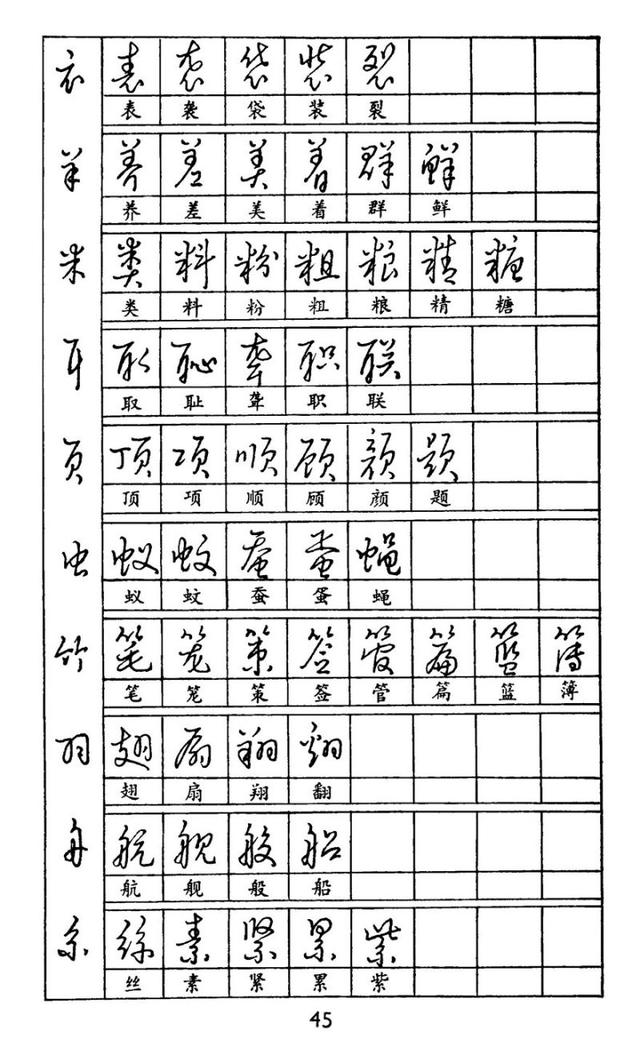 衣 表 袭 袋 装 裂
表 袭 袋 装 裂
羊 养 差 美 着 群 鲜
养 差 美 着 群 鲜
米 类 料 粉 粗 粮 精 糖
类 料 粉 粗 粮 精 糖
耳 取 耻 聋 职 联
取 耻 聋 职 联
页 顶 项 顺 顾 颜 题
顶 项 顺 顾 颜 题
虫 蚁 蚊 蚕 蛋 蝇
蚁 蚊 蚕 蛋 蝇
竹 笔 笼 策 签 管 篇 篮 簿
笔 笼 策 签 管 篇 篮 簿
羽 翅 扇 翔 翻
翅 扇 翔 翻
舟 航 舰 般 船
航 舰 般 船
糸 丝 素 紧 累 紫
丝 素 紧 累 紫
45